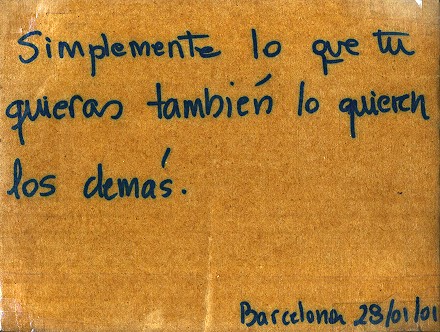 Simplemente lo que tu
quieras también lo quieren
los demás.
Barcelona 28/01/01